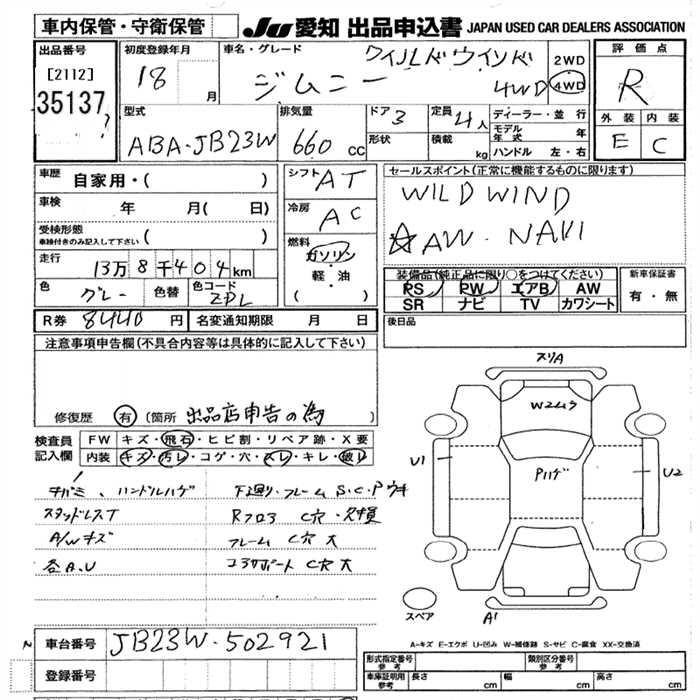 車内保管・守衛保管
JU 愛知 出品申込書 JAPAN USED CAR DEALERS ASSOCIATION
出品番号 初度登録年月 車名・グレード 評価点
[2112] 18 月 ジムニー ワイルドウインド 2WD
35137 4WD 4WD R
型式 排気量 ドア 3 定員 4人 ディーラー・並行 外装 内装
ABA-JB23W 660 cc 形状 積載 kg モデル年式 年 E C
ハンドル 左・右
車歴 自家用・( ) シフト AT セールスポイント(正常に機能するものに限ります)
車検 年 月( 日) 冷房 AC WILD WIND
受検形態 車検付きのみ記入して下さい ( ) ☆AW. NAVI
走行 13万8千404km 燃料 ガソリン
軽・油
( )
装備品(純正品に限り○をつけてください) 新車保証書
色 グレー 色替 色コード ZDL PS PW エアB AW 有・無
SR ナビ TV カワシート
R券 8440 円 名変通知期限 月 日 後日品
注意事項申告欄(不具合内容等は具体的に記入して下さい)
修復歴 有 (箇所 出品店申告の為
検査員記入欄 FW キズ・飛石・ヒビ割・リペア跡・X要
内装 キズ・汚レ・コゲ・穴・スレ・キレ・破レ
チバミ、ハンドルハゲ 下廻り・フレーム S.C.Pウキ
スタッドレスT Rフロア C穴・欠損
A/Wキズ フレーム C穴大
各A.U コアサポート C穴大
スリA
Wコムラ
U1 Pハゲ U2
スペア A1
A-キズ E-エクボ U-凹み W-補修跡 S-サビ C-腐食 XX-交換済
車台番号 JB23W-502921
登録番号
形式指定番号 参考 類別区分番号 参考
車庫証明用 参考 長さ cm 幅 cm 高さ cm